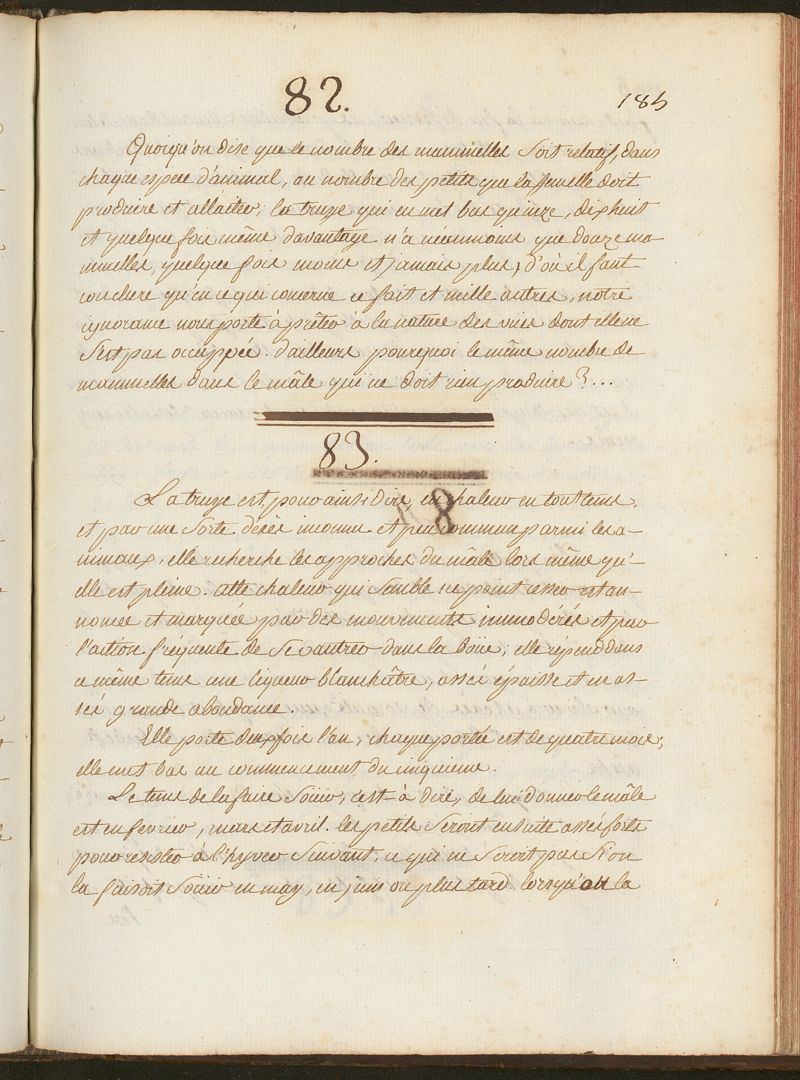 82.
185
Quoiqu'on dise que le nombre des mammelles soit relatif, dans
chaque espece d'animal, au nombre des petits que la femelle doit
produire et allaiter; la truye qui en met bas quinze, dixhuit
et quelque fois même davantage n'a néanmoins que douze ma-
mmelles, quelque fois moins et jamais plus; d'où il faut
conclure qu'en ce qui concerne ce fait et mille autres, notre
ignorance nous porte à prêter à la nature des vües dont elle ne
s'est pas occuppée. d'ailleurs pourquoi le même nombre de
mammelles dans le mâle qui ne doit rien produire ?...
83.
La truye est, pour ainsi dire, en chaleur en tout tems.
et par une sorte d'excès inconnu et peu commun parmi les a-
nimaux, elle recherche les approches du mâle lors même qu'-
elle est pleine. cette chaleur qui semble ne point cesser est an-
noncée et marquée par des mouvements immodérés et par
l'action fréquente de se vautrer dans la boüe; elle répend dans
ce même tems une liqueur blanchâtre, assés épaisse et en as-
sés grande abondance.
Elle porte deux fois l'an; chaque portée est de quatre mois;
elle met bas au commencement du cinquieme.
Le tems de la faire soüir, c'est-à dire, de lui donner le mâle
est en fevrier, mars et avril. les petits seront ensuite assés forts
pour resister à l'hyver suivant. ce qui ne seroit pas si on
la faisoit soüir en may, en juin ou plus tard. lorsqu'on la